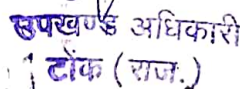 उपखण्ड अधिकारी
टोंक (राज.)